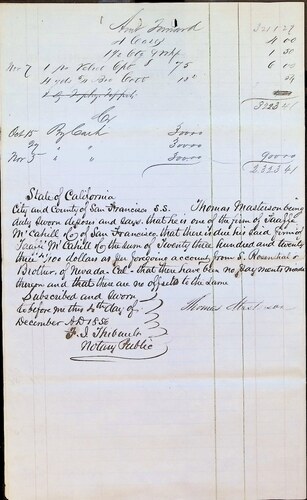 Amt Forward 3201 27
4 Cases 4 00
Nov 7 75 6 00
3223 41
Cr
Oct 15 By Cash 300 00
By " " 300 00
Nov 5 " " 300 00 900 00
2323 41
State of California
City and County of San Francisco S.S. Thomas Masterson being
duly sworn deposes and says. that he is one of the firm of
McCahill & Co of San Francisco, that there is due his said firm of
McCahill & Co the sum of Twenty three hundred and twenty
three 41/100 dollars as per foregoing account, from S. Rosenthal &
Brother, of Nevada - Cal - that there have been no payments made
thereon and that there are no offsets to the same
Subscribed and Sworn
to before me this 4th day of Thomas Masterson
December A.D 1856
F. J. Thibault
Notary Public